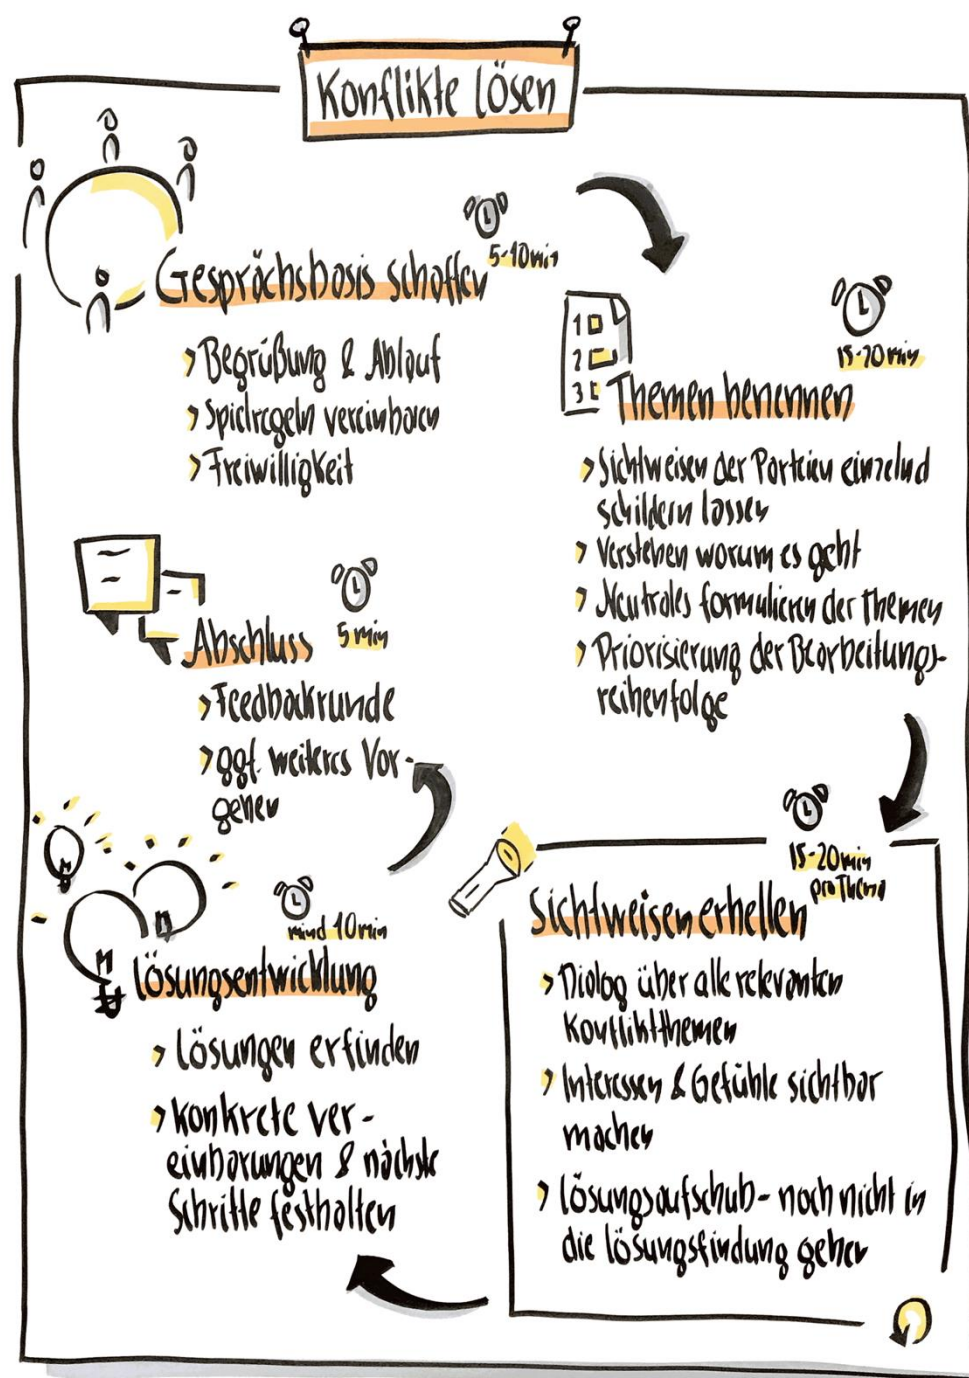 Konflikte lösen
5-10 min
Gesprächsbasis schaffen
> Begrüßung & Ablauf
> Spielregeln vereinbaren
> Freiwilligkeit
1
2
3
15-20 min
Themen benennen
> Sichtweisen der Parteien einzelnd
schildern lassen
> Verstehen worum es geht
> Neutrales formulieren der Themen
> Priorisierung der Bearbeitungs-
reihenfolge
15-20 min
pro Thema
Sichtweisen erhellen
> Dialog über alle relevanten
Konfliktthemen
> Interessen & Gefühle sichtbar
machen
> Lösungsaufschub - noch nicht in
die Lösungsfindung gehen
mind 10 min
Lösungsentwicklung
> Lösungen erfinden
> Konkrete Ver-
einbarungen & nächste
Schritte festhalten
5 min
Abschluss
> Feedbackrunde
> ggf. weiteres Vor-
gehen